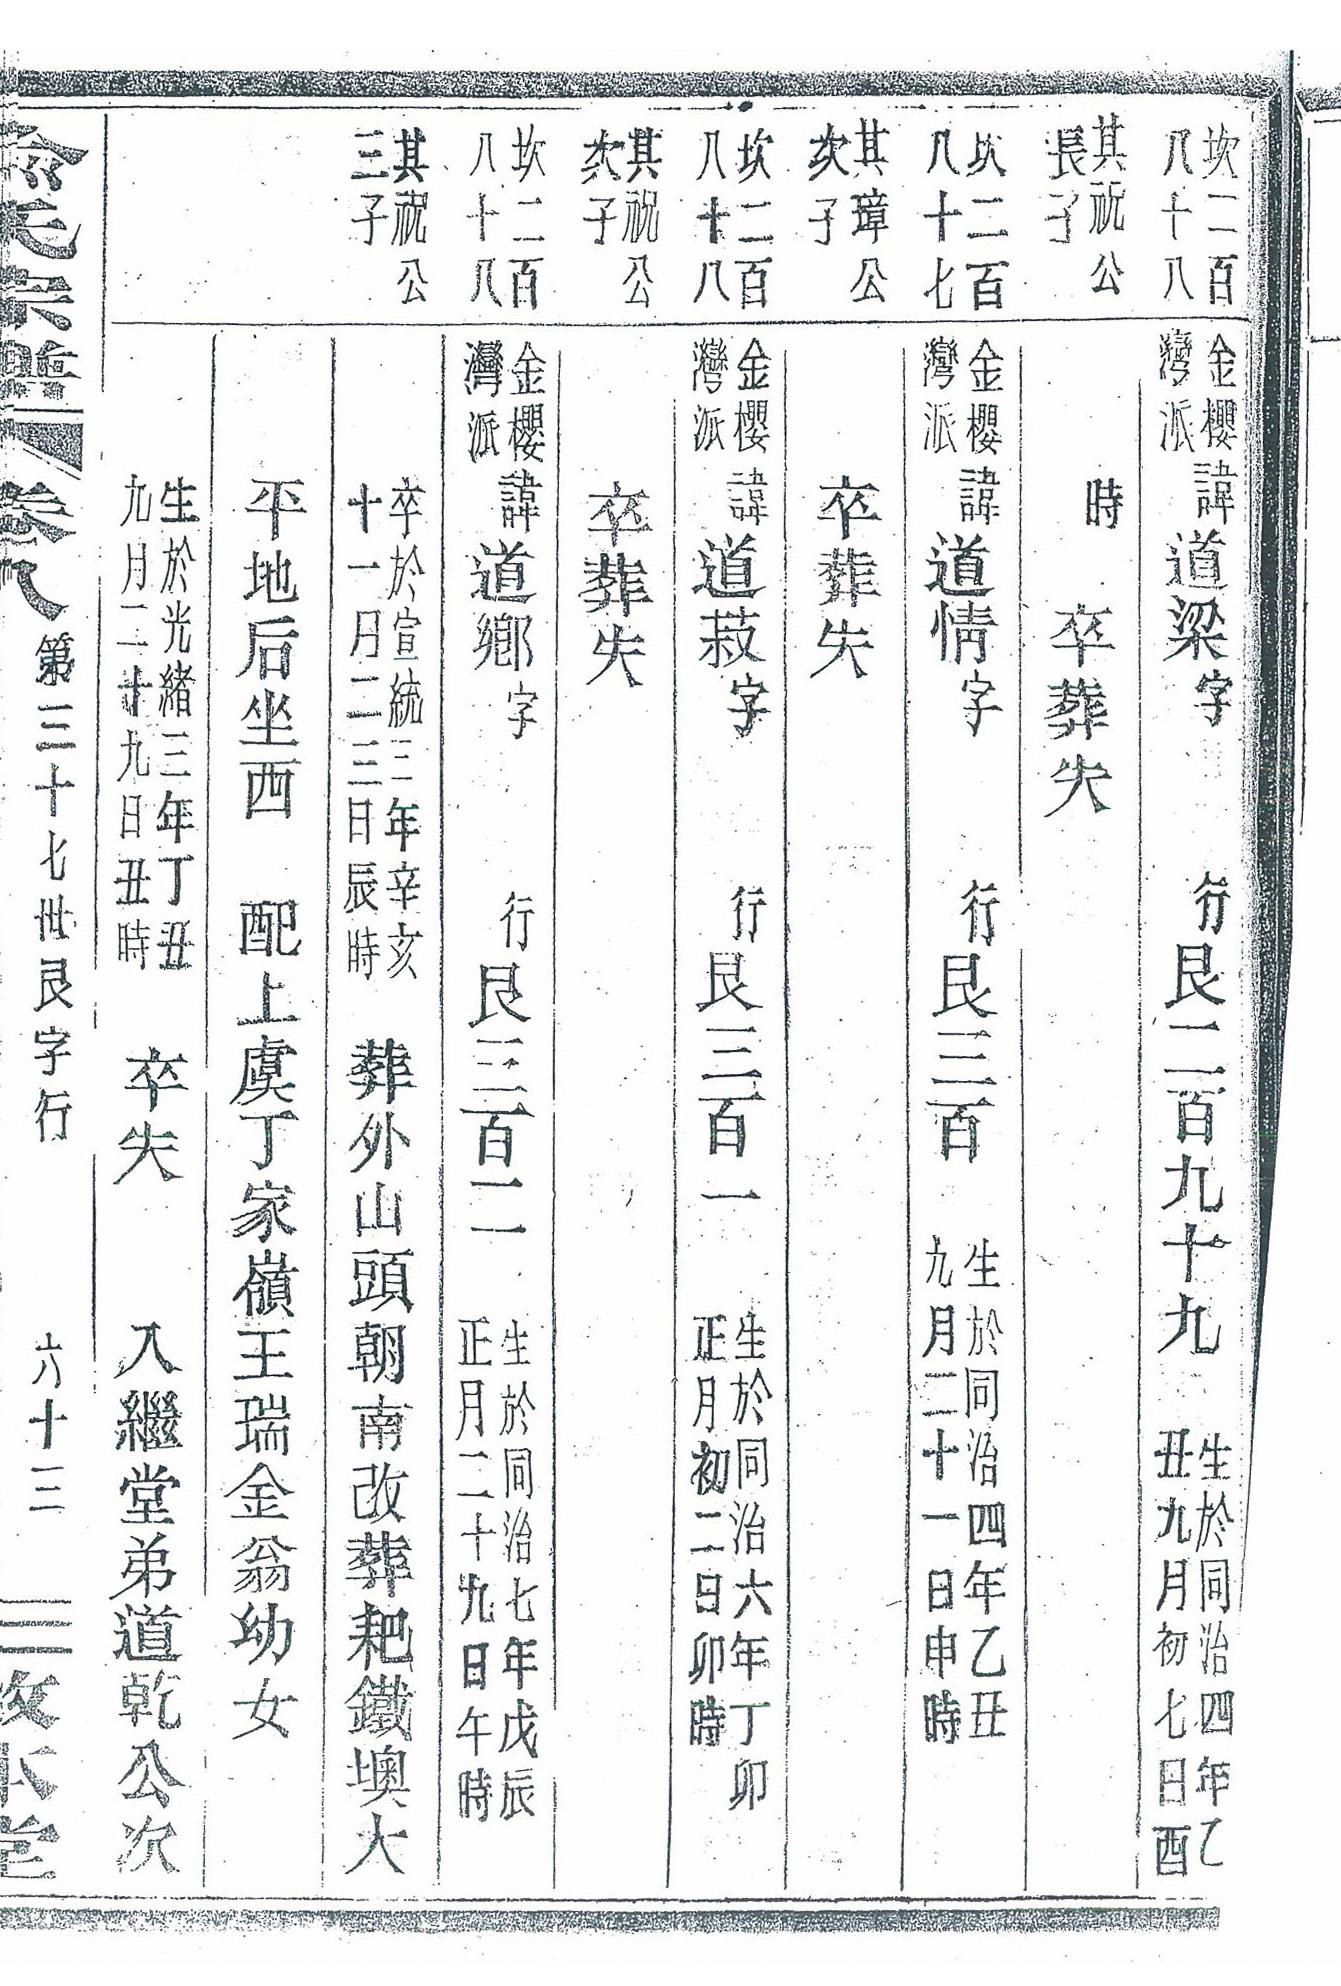 坎二百八十八
其祝公長子
坎二百八十七
其璋公次子
坎二百八十八
其祝公次子
坎二百八十八
其祝公三子
金櫻灣派 諱道梁字 行艮二百九十九 生於同治四年乙丑九月初七日酉
時 卒葬失
金櫻灣派 諱道情字 行艮三百 生於同治四年乙丑九月二十一日申時
卒葬失
金櫻灣派 諱道菽字 行艮三百一 生於同治六年丁卯正月初二日卯時
卒葬失
金櫻灣派 諱道鄉字 行艮三百二 生於同治七年戊辰正月二十九日午時
卒於宣統三年辛亥十一月二三日辰時 葬外山頭朝南改葬耙鐵墺大
平地后坐西 配上虞丁家嶺王瑞金翁幼女
生於光緒三年丁丑九月二十九日丑時 卒失 入繼堂弟道乾公次
氏宗譜 卷八 第三十七世艮字行 六十三 敦本堂